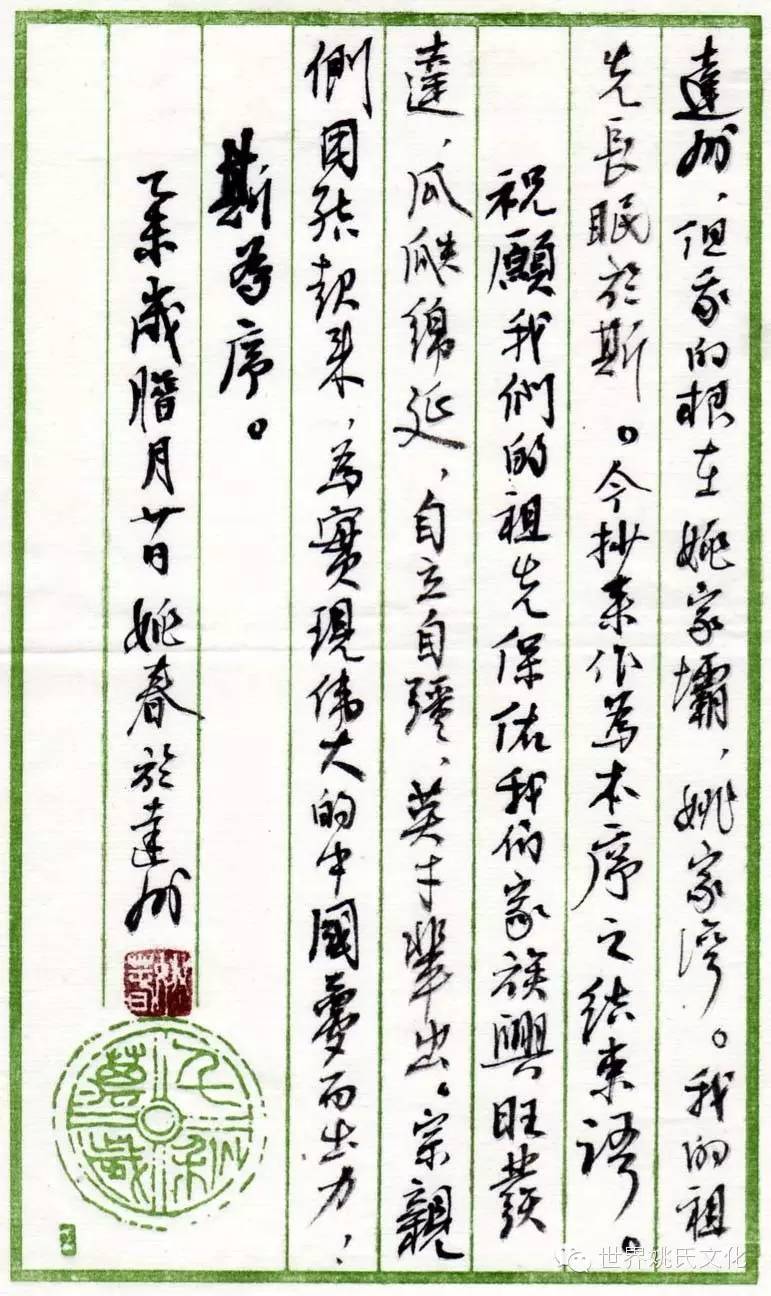 達州，但我的根在姚家壩，姚家灣。我的祖
先長眠於斯。今抄來作為本序之結束語。
祝願我們的祖先保佑我們家族興旺發
達，瓜瓞綿延，自立自彊，英才輩出。宗親
們團結起來，為實現偉大的中國夢而出力！
斯為序。
乙未歲臘月廿日 姚春於達州
姚春
千秋萬歲
世界姚氏文化